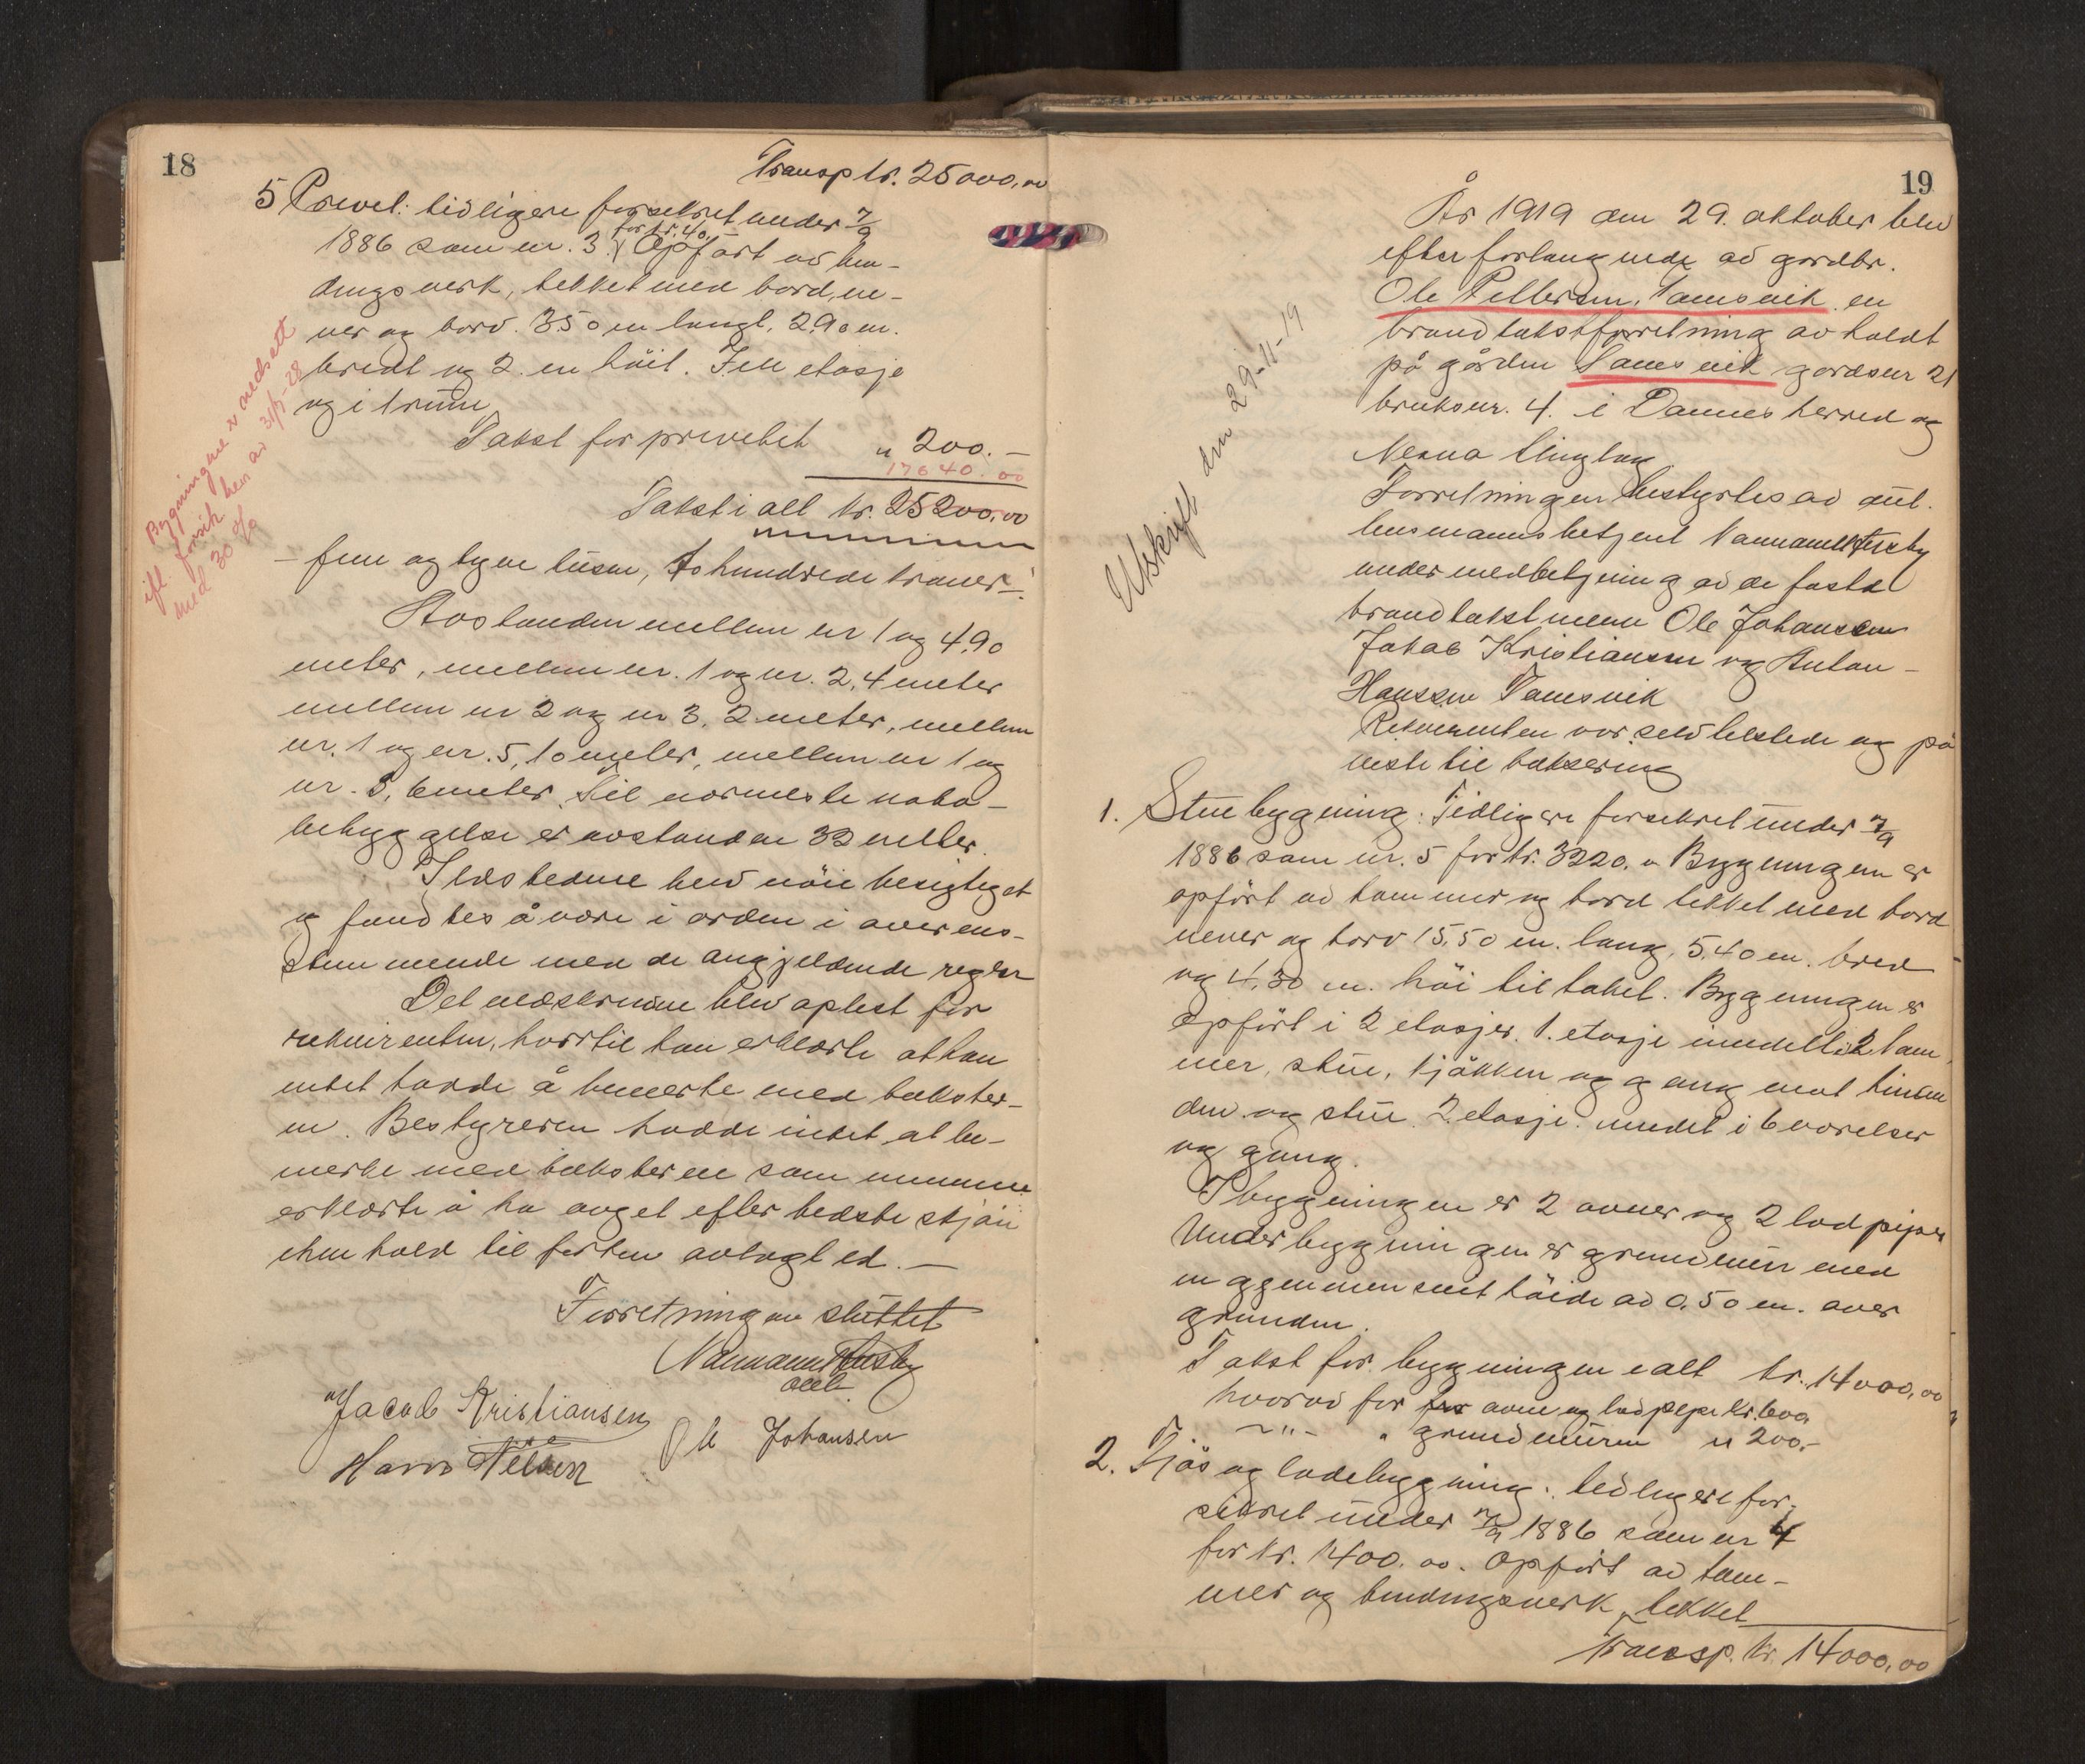 18
Transp kr. 25000,00
5 Privet: tidligere forsekret under 7/9
for kr. 40.
1886 som nr. 3. Opført av bin-
dingsverk, tekket med bord, ne-
ver og torv. 3.50 m langt, 2.90 m.
bredt og 2. m høit. I en etasje
og i 1 rum
Takst for privetet " 200.—
17640.00
Takst i alt kr. 25200,00
— fem og tyve tusen, to hundrede kroner —.
Avstanden mellem nr 1 og 4, 90
meter, mellem nr. 1 og nr. 2, 4 meter
mellem nr 2 og nr 3, 2 meter, mellem
nr. 1 og nr. 5, 10 meter, mellem nr 1 og
nr. 3, 6 meter. Til nærmeste nabo-
bebyggelse er avstanden 33 meter.
Ildstedene blev nöie besigtiget
og fandtes å være i orden i överens-
stemmende med de angjeldende regler
Det nedskrevne blev oplest for
rekvirenten, hvortil han erklærte at han
intet havde å bemerke med taksten-
en. Bestyreren hadde intet at be-
merke med taksterne som mennene
erklærte å ha avget efter bedste skjön
i henhold til forhen avlagt ed. —
Forretningen sluttet
Nanmann Husby
Jacob Kristiansen
Ole Johansen
Hans Nilsen
Bygningene er nedsatt
ifl. forsik. brev av 31/7-28
med 30 %
19
År 1919 den 29. oktober blev
efter forlangende av gardbr.
Ole Pettersen, Tamsvik en
brandtakstforretning avholdt
på gården Tamsvik gardsnr 21
bruksnr. 4. i Dønnes herred og
Nesna tinglag
Forretningen bestyrtes av aut.
lensmannsbetjent Nanmann Husby
under medbetjening av de faste
brandtakstmenn Ole Johanssen
Jakob Kristiansen og Anton
Hanssen Tamsvik
Rekvirenten var selv tilstede og på
viste til taksering
Utskrift den 29-11-19
1. Stuebygning: Tidligere forsekret under 7/9
1886 som nr. 5 for kr. 3220. " Bygningen er
opført av tømmer og bord tekket med bord
never og torv 15.50 m. lang, 5,40 m. bred
og 4.30 m. høi til taket. Bygningen er
opført i 2 etasjer. 1. etasje inndelt i 2 kam
mer, stue, kjøkken og gang mot
den og stue. 2. etasje inndelt i 6 værelser
og gang.
I bygningen er 2 ovner og 2 lodpiper
Under bygningen er grundmur med
en gjennemsnit høide av 0.50 m. over
grunden.
Takst for bygningen i alt kr. 14000,00
hvorav for ovne og lodpipe kr. 600.
— " — " grundmuren " 200.—
2. Fjøs og ladebygning: tidligere for-
sekret under 7/9 1886 som nr 4
for kr. 1400.00. Opført av tøm-
mer og bindingsverk, tekket
Transp. kr. 14000,00